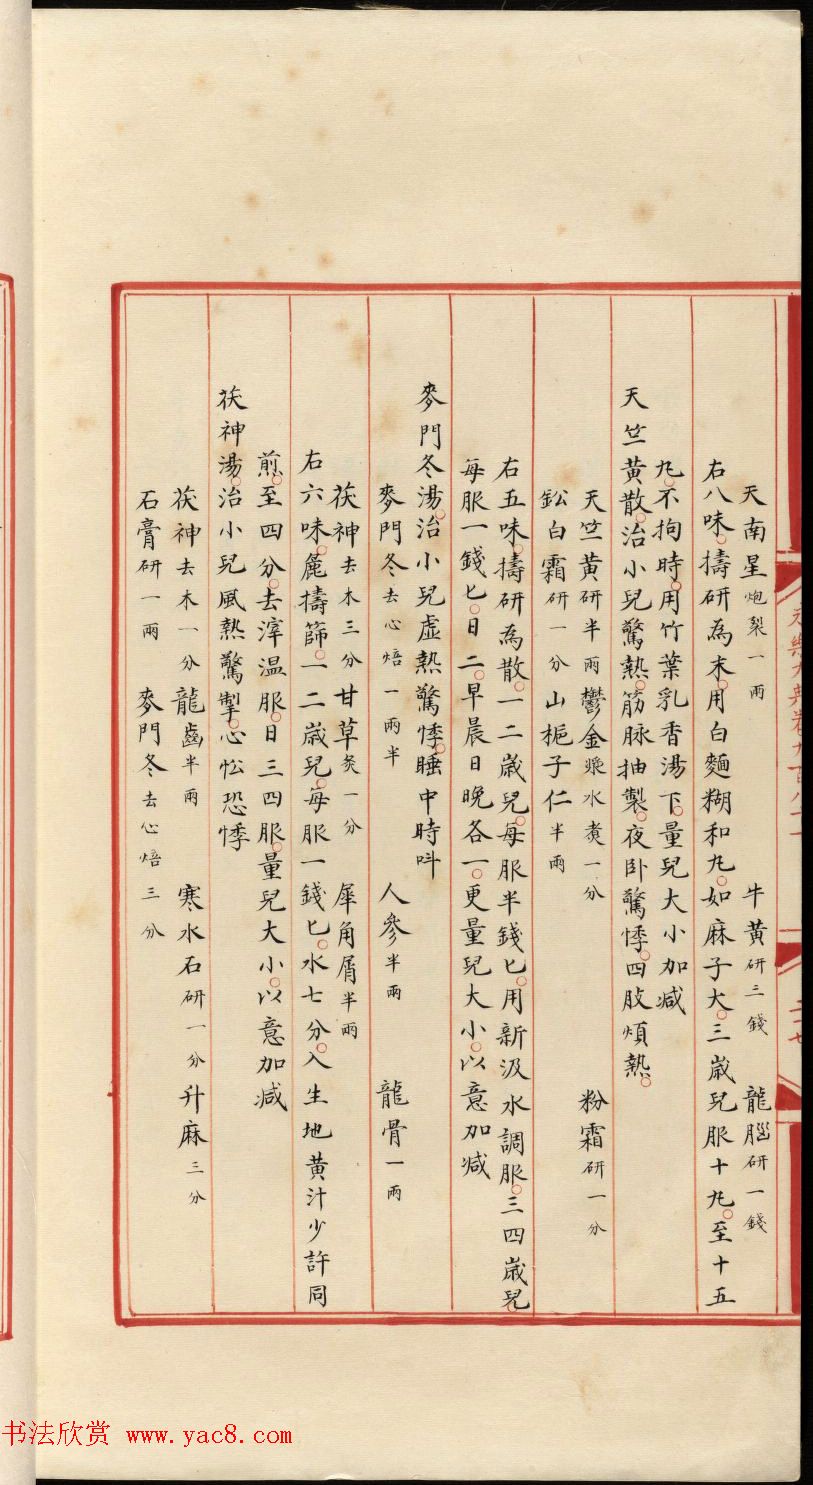 天南星炮裂一兩 牛黄研三錢 龍腦研一錢
右八味。擣研為末。用白麵糊和丸。如麻子大。三歲兒服十丸。至十五
丸。不拘時。用竹葉乳香湯下。量兒大小加減
天竺黄散。治小兒驚熱。筋脉抽掣。夜卧驚悸。四肢煩熱。
天竺黄研半兩 鬱金漿水煑一分 粉霜研一分
鈆白霜研一分 山梔子仁半兩
右五味。擣研為散。一二歲兒。每服半錢匕。用新汲水調服。三四歲兒。
每服一錢匕。日二。早晨日晚各一。更量兒大小。以意加減
麥門冬湯。治小兒虛熱驚悸。睡中時呌
麥門冬去心焙一兩半 人參半兩 龍骨一兩
茯神去木三分 甘草炙一分 犀角屑半兩
右六味。麄擣篩。一二歲兒。每服一錢匕。水七分。入生地黄汁少許同
煎。至四分。去滓温服。日三四服。量兒大小。以意加减
茯神湯。治小兒風熱驚掣。心忪恐悸
茯神去木一分 龍齒半兩 寒水石研一分 升麻三分
石膏研一兩 麥門冬去心焙三分
永樂大典卷九百八十一
二十七
书法欣赏 www.yac8.com